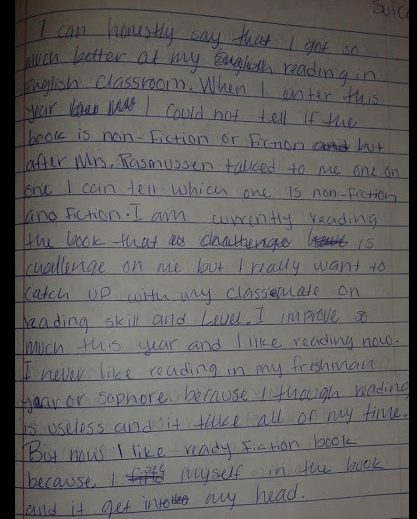 Suic
I can honestly say that I got so
much better at my English reading in
English classroom. When I enter this
year I could not tell if the
book is non-fiction or fiction but
after Mrs. Rasmussen talked to me one on
one I can tell which one is non-fiction
and fiction. I am currently reading
the book that challenge is
challenge on me but I really want to
catch up with my classmate on
reading skill and level. I improve so
much this year and I like reading now.
I never like reading in my freshman
year or sophore because I though reading
is useless and it take all of my time.
But now I like ready fiction book
because I myself in the book
and it get into my head.